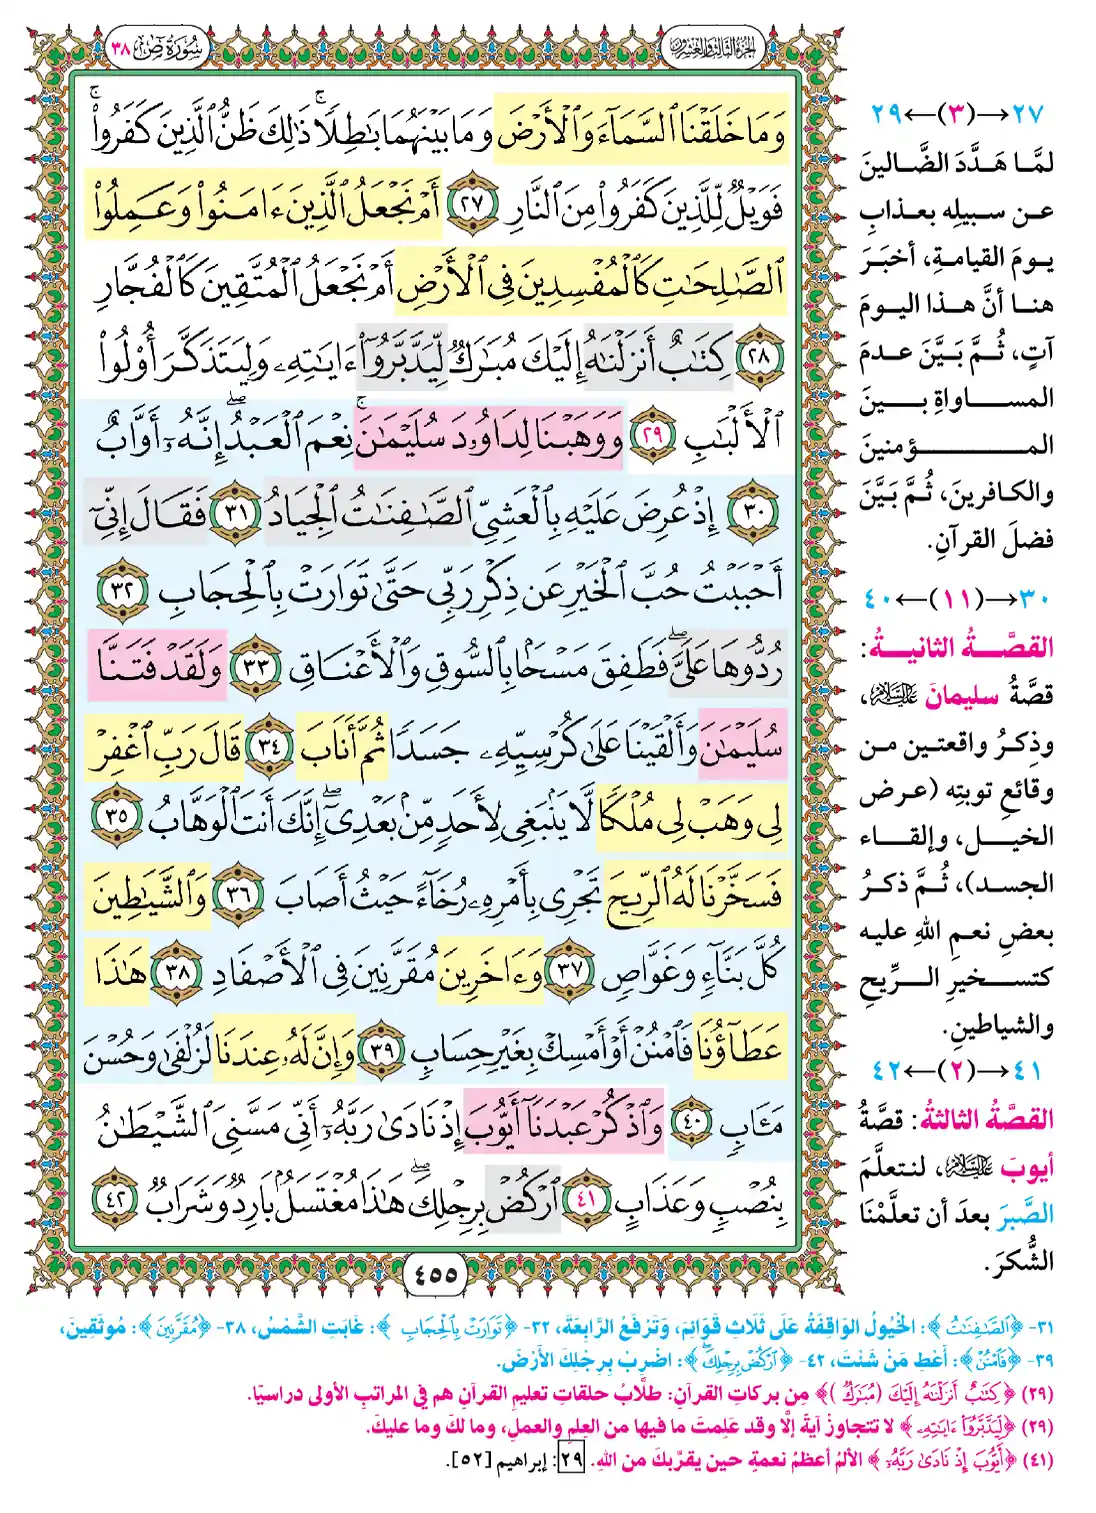 الجزء الثالث والعشرون
سُورَةُ صٓ ٣٨
وَمَا خَلَقْنَا ٱلسَّمَآءَ وَٱلْأَرْضَ وَمَا بَيْنَهُمَا بَٰطِلًاۚ ذَٰلِكَ ظَنُّ ٱلَّذِينَ كَفَرُواْۚ
فَوَيْلٌ لِّلَّذِينَ كَفَرُواْ مِنَ ٱلنَّارِ ٢٧ أَمْ نَجْعَلُ ٱلَّذِينَ ءَامَنُواْ وَعَمِلُواْ
ٱلصَّٰلِحَٰتِ كَٱلْمُفْسِدِينَ فِى ٱلْأَرْضِ أَمْ نَجْعَلُ ٱلْمُتَّقِينَ كَٱلْفُجَّارِ
٢٨ كِتَٰبٌ أَنزَلْنَٰهُ إِلَيْكَ مُبَٰرَكٌ لِّيَدَّبَّرُوٓاْ ءَايَٰتِهِۦ وَلِيَتَذَكَّرَ أُوْلُواْ
ٱلْأَلْبَٰبِ ٢٩ وَوَهَبْنَا لِدَاوُۥدَ سُلَيْمَٰنَۚ نِعْمَ ٱلْعَبْدُۖ إِنَّهُۥٓ أَوَّابٌ
٣٠ إِذْ عُرِضَ عَلَيْهِ بِٱلْعَشِىِّ ٱلصَّٰفِنَٰتُ ٱلْجِيَادُ ٣١ فَقَالَ إِنِّىٓ
أَحْبَبْتُ حُبَّ ٱلْخَيْرِ عَن ذِكْرِ رَبِّى حَتَّىٰ تَوَارَتْ بِٱلْحِجَابِ ٣٢
رُدُّوهَا عَلَىَّۖ فَطَفِقَ مَسْحًۢا بِٱلسُّوقِ وَٱلْأَعْنَاقِ ٣٣ وَلَقَدْ فَتَنَّا
سُلَيْمَٰنَ وَأَلْقَيْنَا عَلَىٰ كُرْسِيِّهِۦ جَسَدًا ثُمَّ أَنَابَ ٣٤ قَالَ رَبِّ ٱغْفِرْ
لِى وَهَبْ لِى مُلْكًا لَّا يَنۢبَغِى لِأَحَدٍ مِّنۢ بَعْدِىٓۖ إِنَّكَ أَنتَ ٱلْوَهَّابُ ٣٥
فَسَخَّرْنَا لَهُ ٱلرِّيحَ تَجْرِى بِأَمْرِهِۦ رُخَآءً حَيْثُ أَصَابَ ٣٦ وَٱلشَّيَٰطِينَ
كُلَّ بَنَّآءٍ وَغَوَّاصٍ ٣٧ وَءَاخَرِينَ مُقَرَّنِينَ فِى ٱلْأَصْفَادِ ٣٨ هَٰذَا
عَطَآؤُنَا فَٱمْنُنْ أَوْ أَمْسِكْ بِغَيْرِ حِسَابٍ ٣٩ وَإِنَّ لَهُۥ عِندَنَا لَزُلْفَىٰ وَحُسْنَ
مَـَٔابٍ ٤٠ وَٱذْكُرْ عَبْدَنَآ أَيُّوبَ إِذْ نَادَىٰ رَبَّهُۥٓ أَنِّى مَسَّنِىَ ٱلشَّيْطَٰنُ
بِنُصْبٍ وَعَذَابٍ ٤١ ٱرْكُضْ بِرِجْلِكَۖ هَٰذَا مُغْتَسَلٌۢ بَارِدٌ وَشَرَابٌ ٤٢
٤٥٥
٢٧→(٣)←٢٩
لمَّا هَدَّدَ الضَّالينَ
عن سبيلِه بعذابِ
يومَ القيامةِ، أخبَرَ
هنا أنَّ هذا اليومَ
آتٍ، ثُمَّ بَيَّنَ عدمَ
المساواةِ بينَ
المؤمنينَ
والكافرينَ، ثُمَّ بَيَّنَ
فضلَ القرآنِ.
٣٠→(١١)←٤٠
القصَّةُ الثانيةُ:
قصَّةُ سليمانَ عليه السلام،
وذِكرُ واقعتين من
وقائعِ توبتِه (عرض
الخيل، وإلقاء
الجسد)، ثُمَّ ذكرُ
بعضِ نعمِ اللهِ عليه
كتسخيرِ الرِّيحِ
والشياطينِ.
٤١→(٢)←٤٢
القصَّةُ الثالثةُ: قصَّةُ
أيوبَ عليه السلام، لنتعلَّمَ
الصَّبرَ بعدَ أن تعلَّمْنَا
الشُّكرَ.
٣١- ﴿ٱلصَّٰفِنَٰتُ﴾: الخُيُولُ الوَاقِفَةُ عَلَى ثَلَاثِ قَوَائِمَ، وَتَرْفَعُ الرَّابِعَةَ، ٣٢- ﴿تَوَارَتْ بِٱلْحِجَابِ﴾: غَابَتِ الشَّمْسُ، ٣٨- ﴿مُقَرَّنِينَ﴾: مُوثَقِينَ،
٣٩- ﴿فَٱمْنُنْ﴾: أَعْطِ مَنْ شِئْتَ، ٤٢- ﴿ٱرْكُضْ بِرِجْلِكَۖ﴾: اضْرِبْ بِرِجْلِكَ الأَرْضَ.
(٢٩) ﴿كِتَٰبٌ أَنزَلْنَٰهُ إِلَيْكَ (مُبَٰرَكٌ)﴾ مِن بركاتِ القرآنِ: طلَّابُ حلقاتِ تعليمِ القرآنِ هم في المراتبِ الأولى دراسيًا.
(٢٩) ﴿لِّيَدَّبَّرُوٓاْ ءَايَٰتِهِۦ﴾ لا تتجاوزْ آيةً إلَّا وقد عَلِمتَ ما فيها من العِلمِ والعملِ، وما لكَ وما عليكَ.
(٤١) ﴿أَيُّوبَ إِذْ نَادَىٰ رَبَّهُۥٓ﴾ الألمُ أعظمُ نعمةٍ حين يقرِّبكَ من اللهِ. ٢٩: إبراهيم [٥٢].